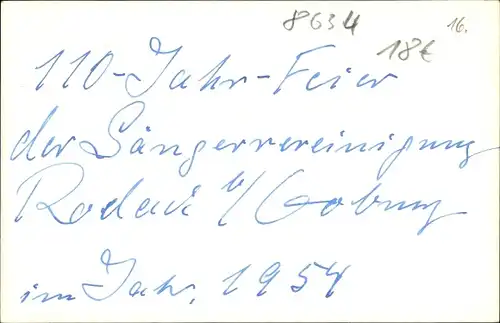 8634
16.
18€
110-Jahr-Feier
der Sängervereinigung
Rodach b/Coburg
im Jahr, 1954